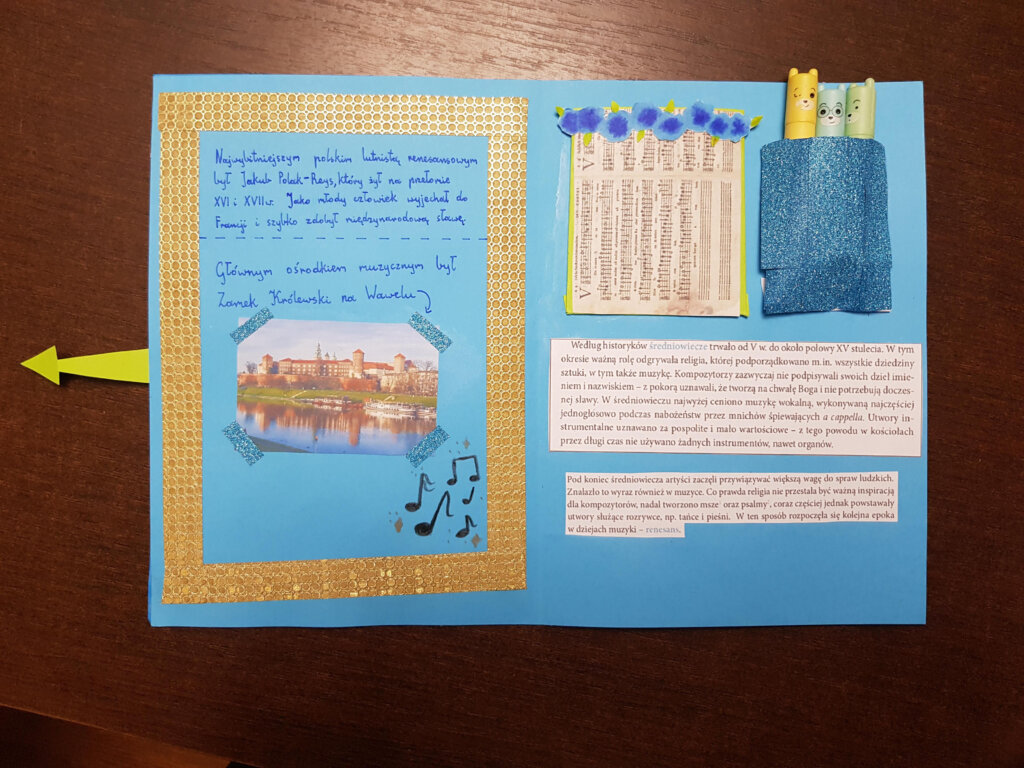 Najwybitniejszym polskim lutnistą renesansowym
był Jakub Polak-Reys, który żył na przełomie
XVI i XVII w. Jako młody człowiek wyjechał do
Francji i szybko zdobył międzynarodową sławę.
Głównym ośrodkiem muzycznym był
Zamek Królewski na Wawelu
Według historyków średniowiecze trwało od V w. do około połowy XV stulecia. W tym
okresie ważną rolę odgrywała religia, której podporządkowano m.in. wszystkie dziedziny
sztuki, w tym także muzykę. Kompozytorzy zazwyczaj nie podpisywali swoich dzieł imie-
niem i nazwiskiem – z pokorą uznawali, że tworzą na chwałę Boga i nie potrzebują doczes-
nej sławy. W średniowieczu najwyżej ceniono muzykę wokalną, wykonywaną najczęściej
jednogłosowo podczas nabożeństw przez mnichów śpiewających a cappella. Utwory in-
strumentalne uznawano za pospolite i mało wartościowe – z tego powodu w kościołach
przez długi czas nie używano żadnych instrumentów, nawet organów.
Pod koniec średniowiecza artyści zaczęli przywiązywać większą wagę do spraw ludzkich.
Znalazło to wyraz również w muzyce. Co prawda religia nie przestała być ważną inspiracją
dla kompozytorów, nadal tworzono msze oraz psalmy, coraz częściej jednak powstawały
utwory służące rozrywce, np. tańce i pieśni. W ten sposób rozpoczęła się kolejna epoka
w dziejach muzyki – renesans.